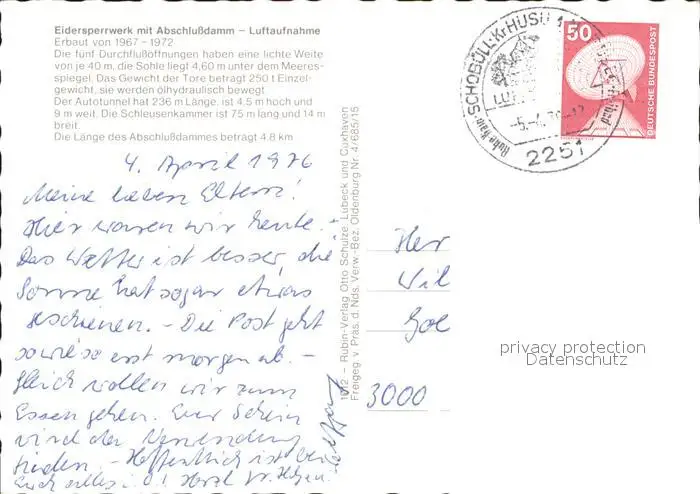 Eidersperrwerk mit Abschlußdamm – Luftaufnahme
Erbaut von 1967–1972
Die fünf Durchflußöffnungen haben eine lichte Weite
von je 40 m, die Sohle liegt 4,60 m unter dem Meeres-
spiegel. Das Gewicht der Tore beträgt 250 t Einzel-
gewicht, sie werden ölhydraulisch bewegt.
Der Autotunnel hat 236 m Länge, ist 4,5 m hoch und
9 m weit. Die Schleusenkammer ist 75 m lang und 14 m
breit.
Die Länge des Abschlußdammes beträgt 4,8 km
4. April 1976
Meine lieben Eltern!
Hier waren wir heute. –
Das Wetter ist besser, die
Sonne hat sogar etwas
geschienen. – Die Post geht
sowieso erst morgen ab. –
Gleich wollen wir zum
Essen gehen. Euer Schein
wird der Verwendung
finden. – Hoffentlich ist bei
Euch alles i. O.! Horst
1012 – Rubin-Verlag Otto Schulze, Lübeck und Cuxhaven
Freigeg. v. Präs. d. Nds. Verw.-Bez. Oldenburg Nr. 4/685/15
Her
Wil
Goe
3000
SCHOBÜLL Kr HUSUM
2251
50
DEUTSCHE BUNDESPOST
privacy protection
Datenschutz